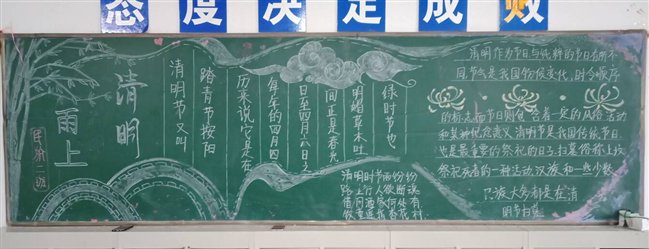 态度决定成败
清明
雨上
清明节又叫
踏青节按阳
历来说它是在
每年的四月四
日至四月六日之
间正是春光
明媚草木吐
绿时节也
清明时节雨纷纷
路上行人欲断魂
借问酒家何处有
牧童遥指杏花村
清明作为节日与纯粹的节日有所不
同节气是我国物候变化，时令顺序
的标志而节日则包含着一定的风俗活动
和某种纪念意义 清明节是我国传统节日
也是最重要的祭祀的日子扫墓俗称上坟
祭祀死者的一种活动 汉族和一些少数
民族大多都是在清
明节扫墓